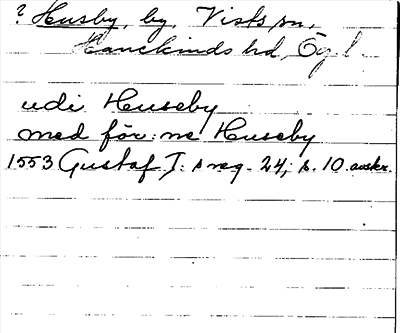 ? Husby, by, Vists sn,
Hanekinds hd, Ög. l.
udi Huseby
med för:ne Huseby
1553 Gustaf I:s reg. 24; s. 10 avskr.